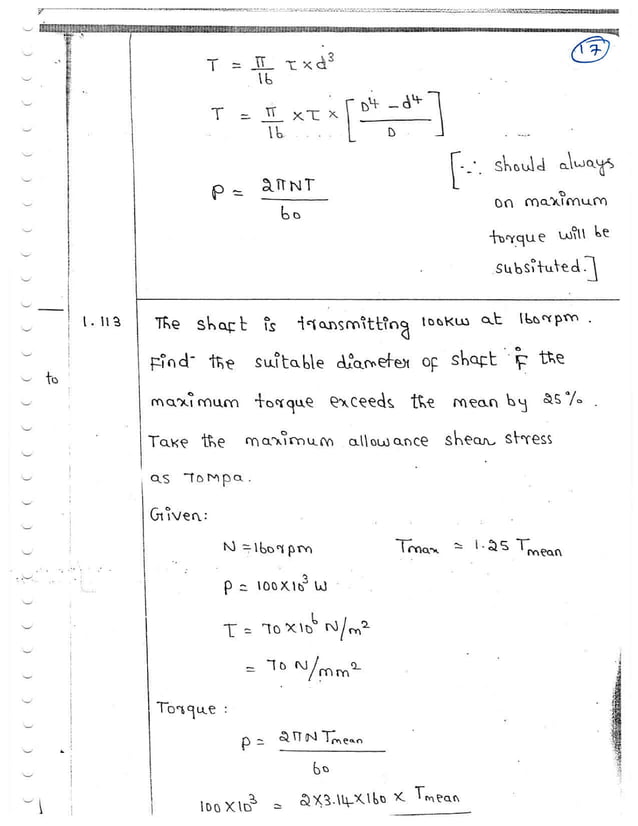 17
T = π/16 τ × d³
T = π/16 × τ × [D⁴ - d⁴ / D]
P = 2πNT / 60
[∵ should always
on maximum
torque will be
subsituted.]
to
1.113 The shaft is transmitting 100kw at 160rpm.
Find the suitable diameter of shaft if the
maximum torque exceeds the mean by 25%.
Take the maximum allowance shear stress
as 70Mpa.
Given:
N = 160rpm Tmax = 1.25 Tmean
P = 100×10³ W
τ = 70×10⁶ N/m²
= 70 N/mm²
Torque :
P = 2πN Tmean / 60
100×10³ = 2×3.14×160 × Tmean